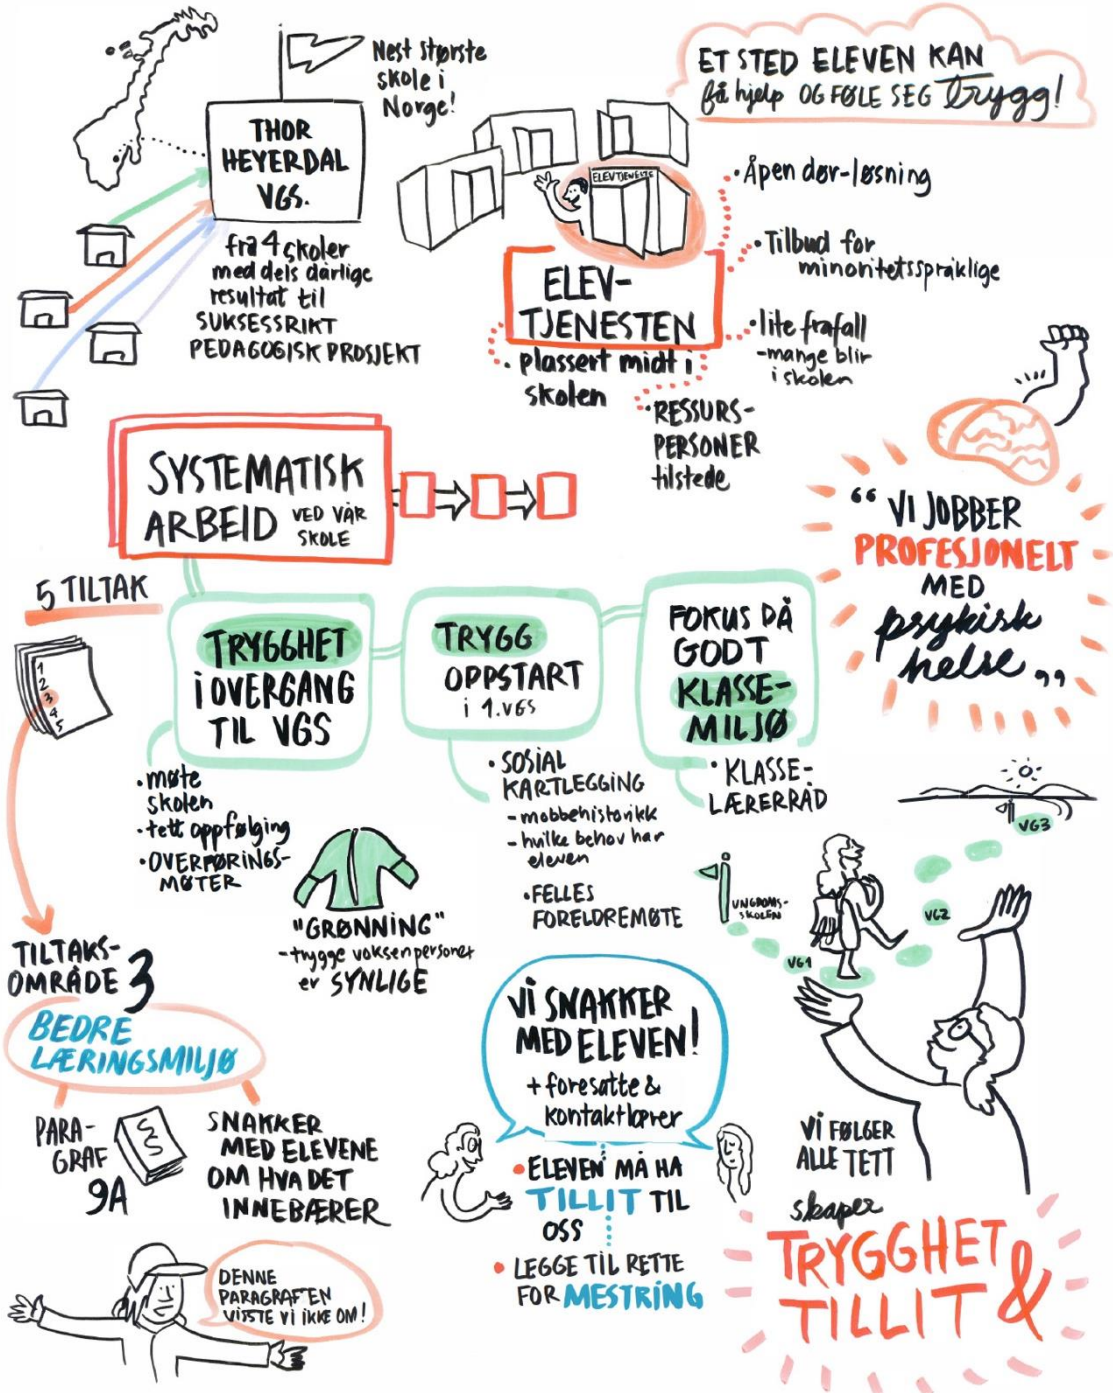 Nest største
skole i
Norge!
THOR
HEYERDAL
VGS.
fra 4 skoler
med dels dårlige
resultat til
SUKSESSRIKT
PEDAGOGISK PROSJEKT
ET STED ELEVEN KAN
få hjelp OG FØLE SEG trygg!
ELEVTJENESTE
ELEV-
TJENESTEN
• Åpen dør-løsning
• Tilbud for
minoritetsspråklige
• lite frafall
- mange blir
i skolen
• RESSURS-
PERSONER
tilstede
• plassert midt i
skolen
SYSTEMATISK
ARBEID VED VÅR
SKOLE
“VI JOBBER
PROFESJONELT
MED
psykisk
helse”
5 TILTAK
1
2
3
4
5
TRYGGHET
i OVERGANG
TIL VGS
• møte
skolen
• tett oppfølging
• OVERFØRINGS-
MØTER
"GRØNNING"
- trygge voksenpersoner
er SYNLIGE
TRYGG
OPPSTART
i 1.VGS
• SOSIAL
KARTLEGGING
- mobbehistorikk
- hvilke behov har
eleven
• FELLES
FORELDREMØTE
FOKUS PÅ
GODT
KLASSE-
MILJØ
• KLASSE-
LÆRERRÅD
UNGDOMS-
SKOLEN
VG1
VG2
VG3
TILTAKS-
OMRÅDE 3
BEDRE
LÆRINGSMILJØ
PARA-
GRAF
9A
SNAKKER
MED ELEVENE
OM HVA DET
INNEBÆRER
DENNE
PARAGRAFEN
VISSTE VI IKKE OM!
VI SNAKKER
MED ELEVEN!
+ foresatte &
kontaktlærer
• ELEVEN MÅ HA
TILLIT TIL
OSS
• LEGGE TIL RETTE
FOR MESTRING
VI FØLGER
ALLE TETT
skaper
TRYGGHET &
TILLIT